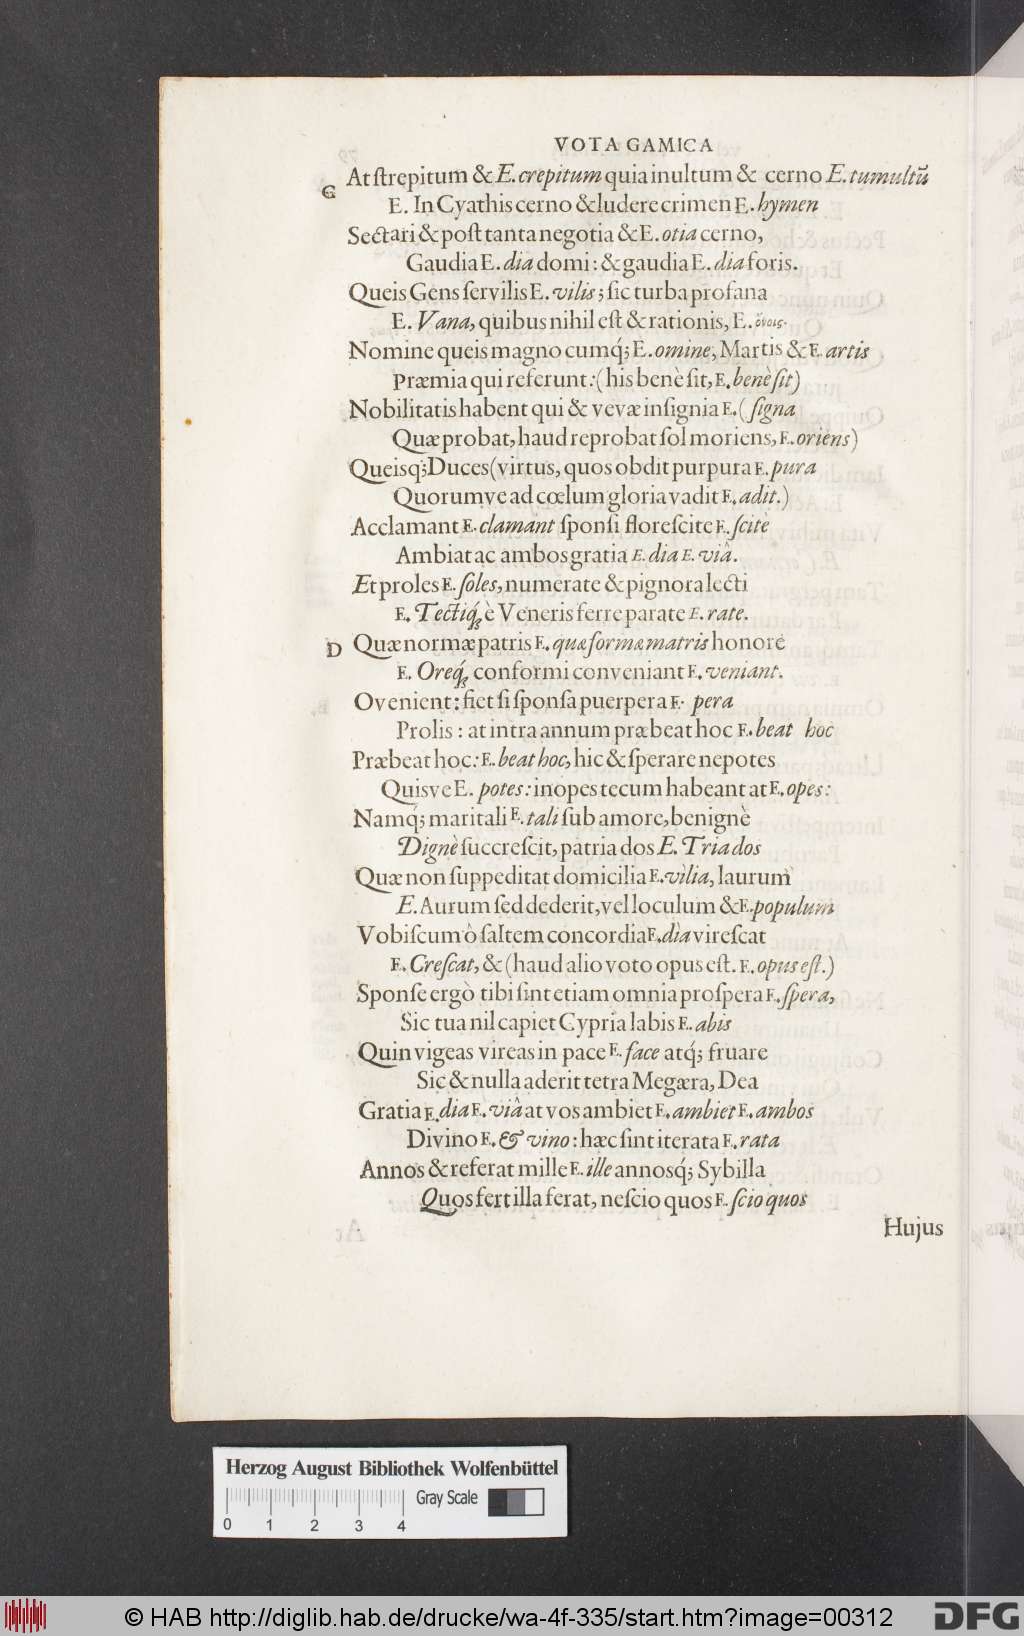 VOTA GAMICA
At ſtrepitum & E. crepitum quia inultum & cerno E. tumultũ
C
E. In Cyathis cerno & ludere crimen E. hymen
Sectari & poſt tanta negotia & E. otia cerno,
Gaudia E. dia domi: & gaudia E. dia foris.
Queis Gens ſervilis E. vilis; ſic turba profana
E. Vana, quibus nihil eſt & rationis, E. ὄνοις.
Nomine queis magno cumq́; E. omine, Martis & E. artis
Præmia qui referunt: (his benè ſit, E. benè ſit)
Nobilitatis habent qui & vevæ inſignia E. (ſigna
Quæ probat, haud reprobat ſol moriens, E. oriens)
Queisq; Duces (virtus, quos obdit purpura E. pura
Quorumve ad cœlum gloria vadit E. adit.)
Acclamant E. clamant ſponſi floreſcite E. ſcitè
Ambiat ac ambos gratia E. dia E. viâ.
Et proles E. ſoles, numerate & pignora lecti
E. Tectiq́; è Veneris ferre parate E. rate.
D Quæ normæ patris E. quæ formæ matris honore
E. Oreq́; conformi conveniant E. veniant.
O venient: fiet ſi ſponſa puerpera E. pera
Prolis: at intra annum præbeat hoc E. beat hoc
Præbeat hoc: E. beat hoc, hic & ſperare nepotes
Quisve E. potes: inopes tecum habeant at E. opes:
Namq́; maritali E. tali ſub amore, benignè
Dignè ſuccreſcit, patria dos E. Tria dos
Quæ non ſuppeditat domicilia E. vilia, laurum
E. Aurum ſed dederit, vel loculum & E. populum
Vobiſcum ô ſaltem concordia E. dia vireſcat
E. Creſcat, & (haud alio voto opus eſt. E. opus eſt.)
Sponſe ergò tibi ſint etiam omnia proſpera E. ſpera,
Sic tua nil capiet Cypria labis E. abis
Quin vigeas vireas in pace E. face atq́; fruare
Sic & nulla aderit tetra Megæra, Dea
Gratia E. dia E. viâ at vos ambiet E. ambiet E. ambos
Divino E. & vino: hæc ſint iterata E. rata
Annos & referat mille E. ille annosq́; Sybilla
Quos fert illa ferat, neſcio quos E. ſcio quos
Hujus
Herzog August Bibliothek Wolfenbüttel
Gray Scale
0 1 2 3 4
© HAB http://diglib.hab.de/drucke/wa-4f-335/start.htm?image=00312
DFG